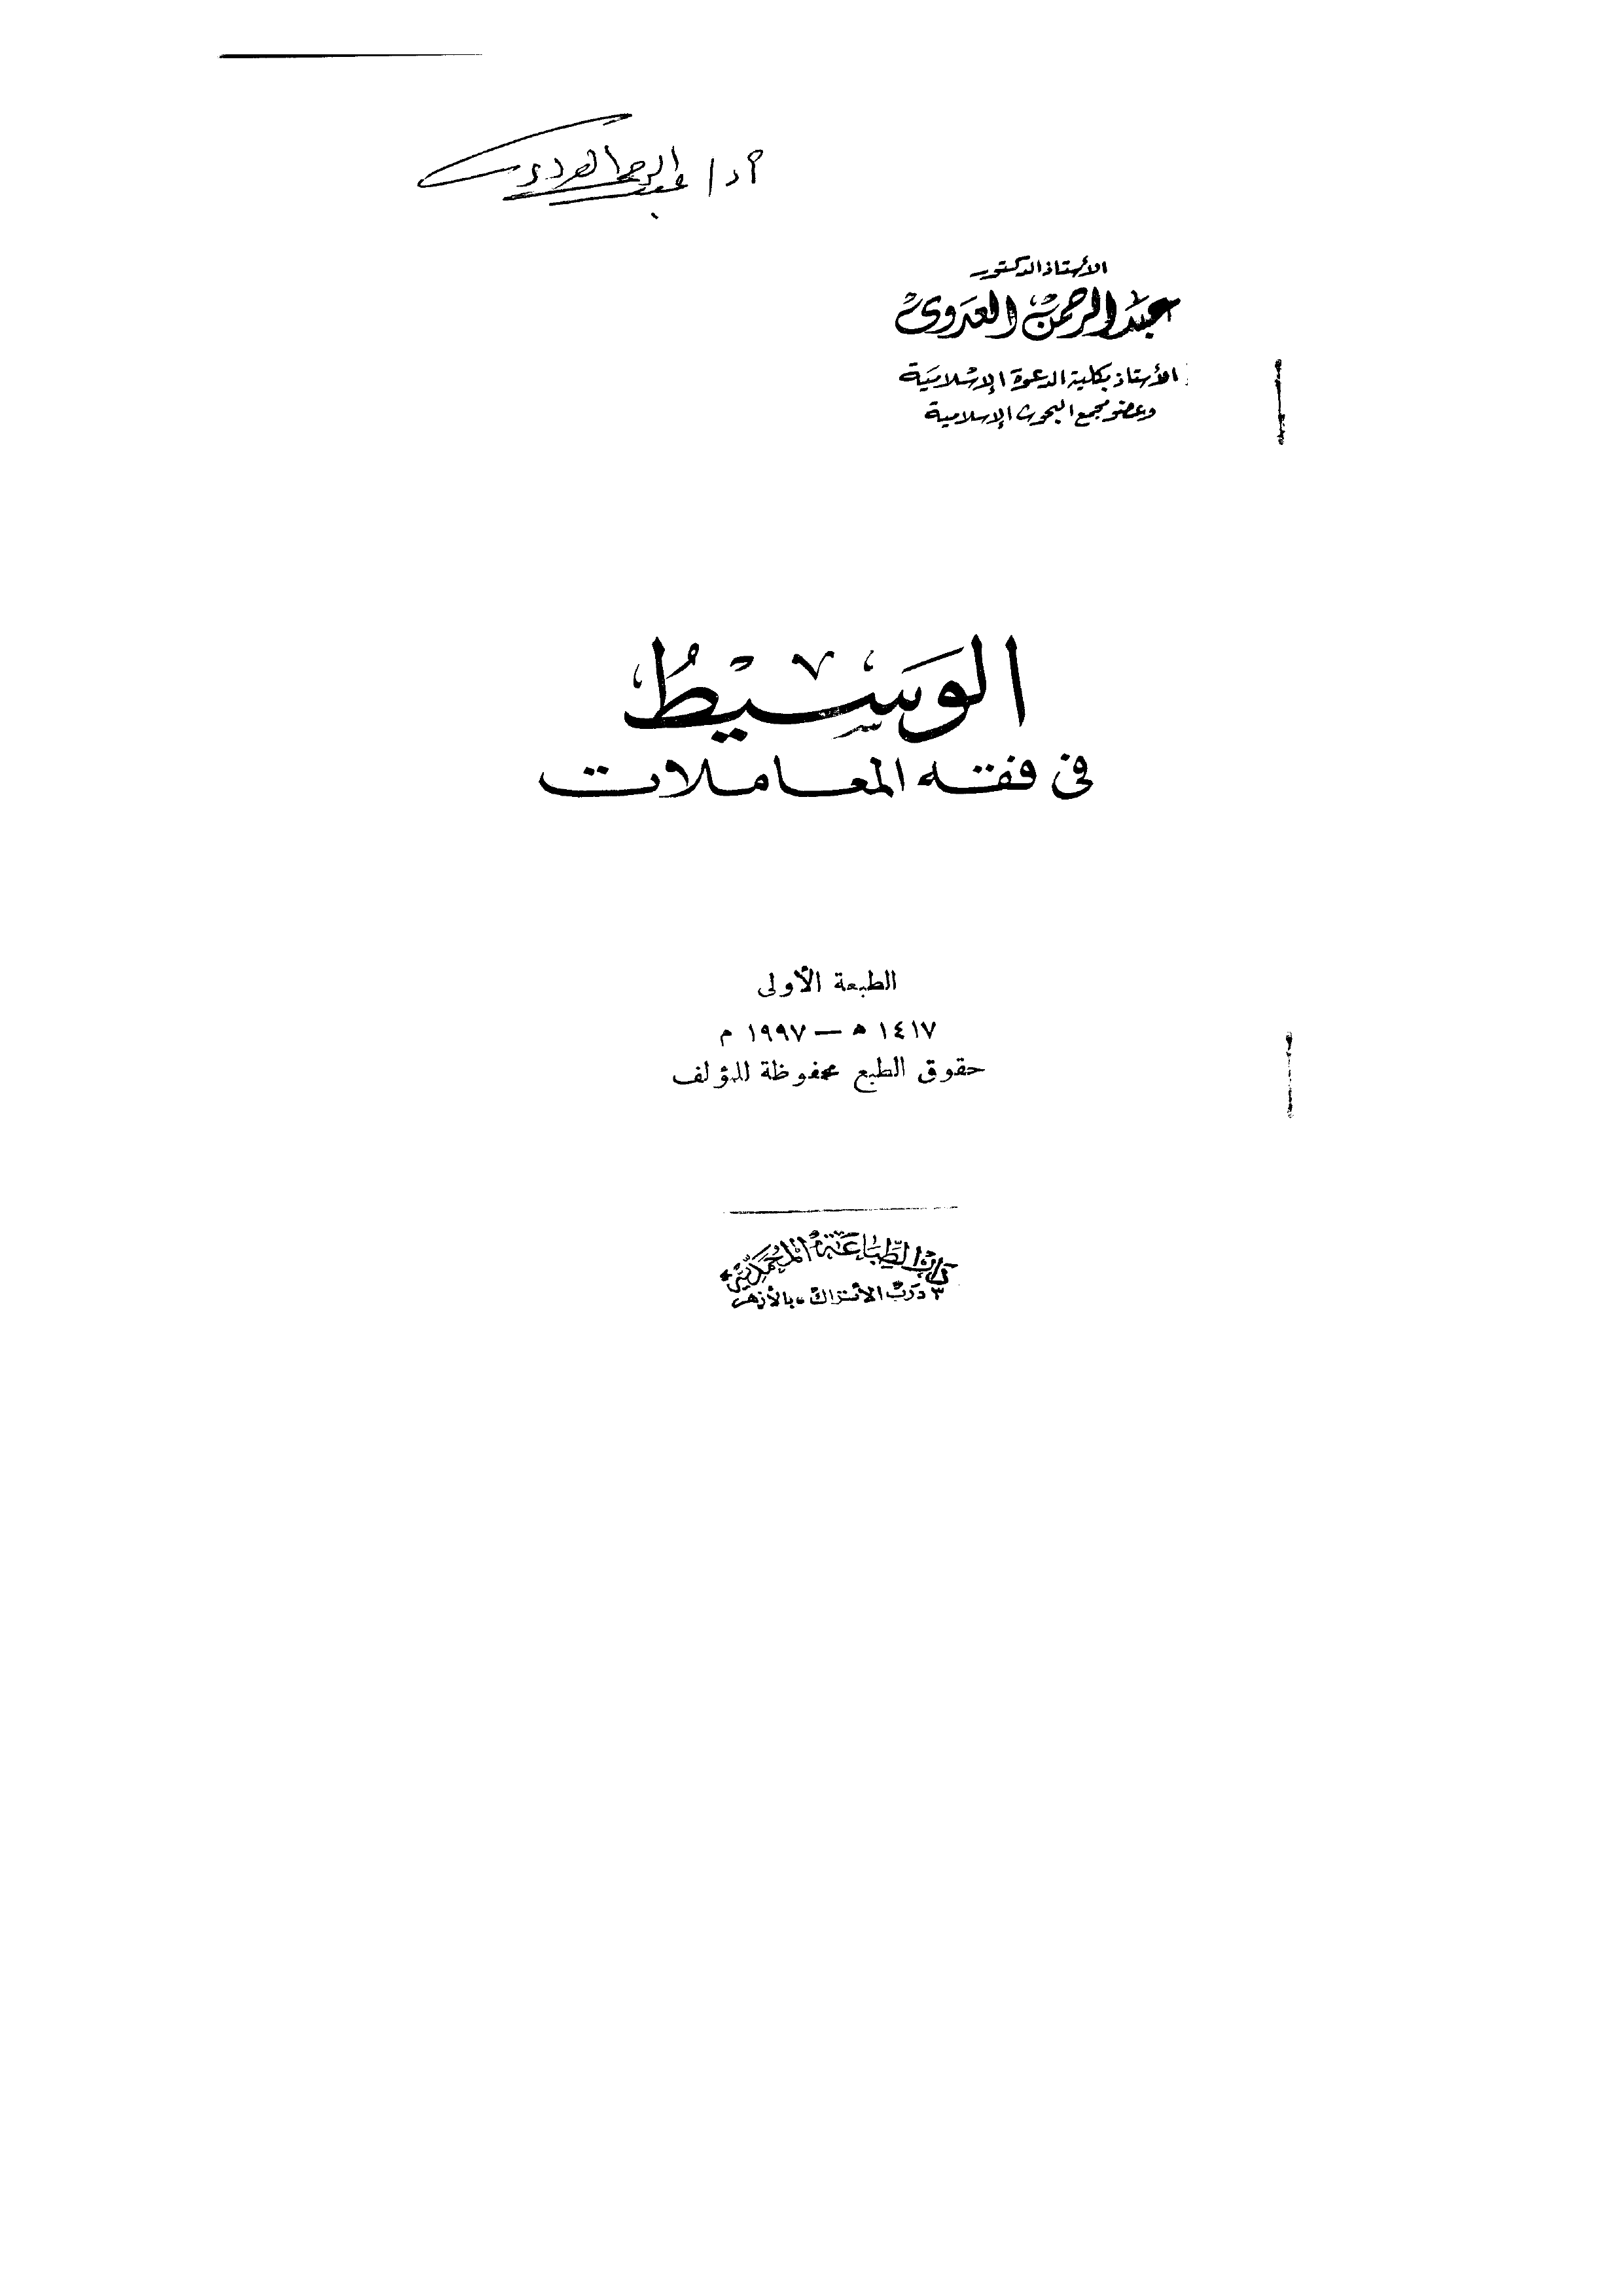 أ د / عبد الرحمن العدوى
الأستاذ الدكتور
عبد الرحمن العدوى
الأستاذ بكلية الدعوة الإسلامية
وعضو مجمع البحوث الإسلامية
الوسيط
فى فقه المعاملات
الطبعة الأولى
١٤١٧ ھ — ١٩٩٧ م
حقوق الطبع محفوظة للمؤلف
دار الطباعة المحمدية
٣ درب الأتراك - بالأزهر